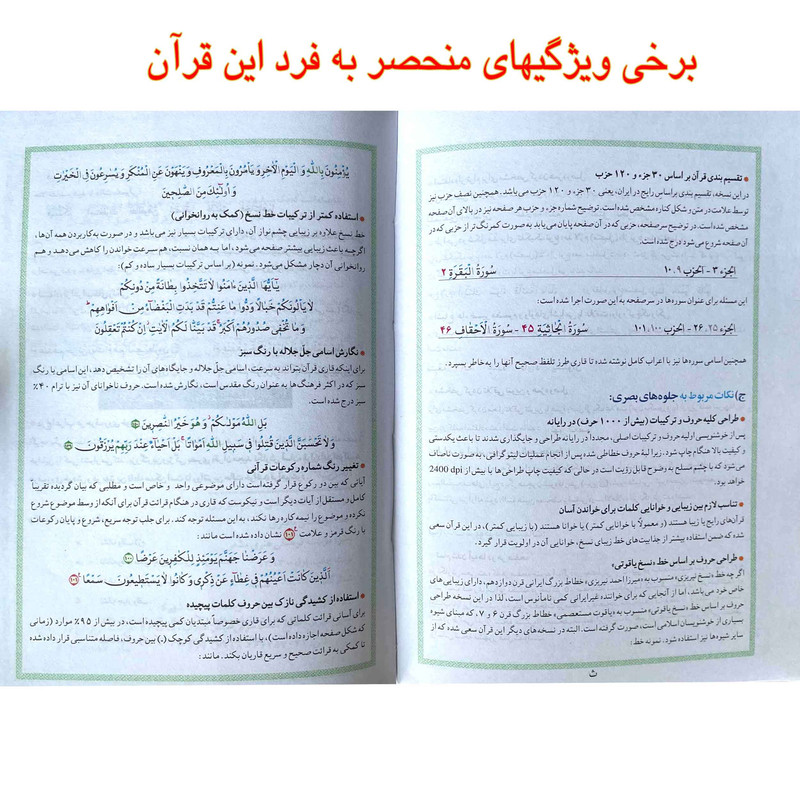 برخی ویژگیهای منحصر به فرد این قرآن
● تقسیم بندی قرآن بر اساس ۳۰ جزء و ۱۲۰ حزب
در این نسخه، تقسیم بندی براساس رایج در ایران، یعنی ۳۰ جزء و ۱۲۰ حزب می‌باشد. همچنین نصف حزب نیز
توسط علامت در متن و شکل کناره مشخص شده است. توضیح شماره جزء و حزب هر صفحه نیز در بالای آن صفحه
مشخص شده است. در توضیح سر صفحه، جزء و حزبی که در آن صفحه پایان می‌یابد به صورت کمرنگ تر از حزبی که در
آن صفحه شروع می‌شود درج شده است:
الجزء ۳ - الحزب ۹، ۱۰ سُورَةُ الْبَقَرَةِ ۲
این مسئله برای عنوان سوره‌ها در سرصفحه به این صورت اجرا شده است:
الجزء ۲۵، ۲۶ - الحزب ۱۰۰، ۱۰۱ سُورَةُ الْجَاثِيَةِ ۴۵ - سُورَةُ الْأَحْقَافِ ۴۶
همچنین اسامی سوره‌ها نیز با اعراب کامل نوشته شده تا قاری طرز تلفظ صحیح آنها را به خاطر بسپرد.
ج) نکات مربوط به جلوه‌های بصری:
● طراحی کلیه حروف و ترکیبات (بیش از ۱۰۰۰ حرف) در رایانه
پس از خوشنویسی اولیه حروف و ترکیبات اصلی، مجدداً در رایانه طراحی و جایگذاری شدند تا باعث یکدستی
و کیفیت بالا هنگام چاپ شود. زیرا لبهٔ حروف خطاطی شده پس از انجام عملیات لیتوگرافی، به صورت ناصاف
می‌شود که با چشم مسلح به وضوح قابل رؤیت است در حالی که کیفیت چاپ طراحی ها با بیش از 2400 dpi
خواهد بود.
● تناسب لازم بین زیبایی و خوانایی کلمات برای خواندن آسان
قرآن‌های رایج یا زیبا هستند (و معمولاً با خوانایی کمتر) یا خوانا هستند (با زیبایی کمتر)، در این قرآن سعی
شده که ضمن استفاده بیشتر از جذابیت‌های خط زیبای نسخ، خوانایی آن در اولویت قرار گیرد.
● طراحی حروف بر اساس خط، «نسخ یاقوتی»
اگر چه خط «نسخ تبریزی» منسوب به «میرزا احمد نیریزی» خطاط بزرگ ایرانی قرن دوازدهم، دارای زیبایی‌های
خاص خود می‌باشد. اما از آنجایی که برای خواننده غیرایرانی کمی نامأنوس است، لذا در این نسخه طراحی
حروف بر اساس خط «نسخ یاقوتی» منسوب به «یاقوت مستعصمی» خطاط بزرگ قرن ۶ و ۷، که مبنای شیوه
بسیاری از خوشنویسان اسلامی است، صورت گرفته است. البته در نسخه های دیگر این قرآن سعی شده که از
سایر شیوه‌ها نیز استفاده شود. نمونه خط:
ث
يُؤْمِنُونَ بِاللَّهِ وَ الْيَوْمِ الْآخِرِ وَ يَأْمُرُونَ بِالْمَعْرُوفِ وَ يَنْهَوْنَ عَنِ الْمُنْكَرِ وَ يُسَرِعُونَ فِى الْخَيْرَتِ
وَ أُولَئِكَ مِنَ الصَّلِحِينَ
● استفاده کمتر از ترکیبات خط نسخ (کمک به روانخوانی)
خط نسخ علاوه بر زیبایی چشم نواز آن، دارای ترکیبات بسیار نیز می‌باشد و در صورت به‌کاربردن همه آن‌ها،
اگرچه باعث زیبایی بیشتر صفحه می‌شود، اما به همان نسبت، هم سرعت خواندن را کاهش می‌دهد و هم
روانخوانی آن دچار مشکل می‌شود. نمونه (بر اساس ترکیبات بسیار ساده و کم):
يَأَيُّهَا الَّذِينَ ءَامَنُوا لَا تَتَّخِذُوا بِطَانَةً مِنْ دُونِكُمْ
لَا يَأْلُونَكُمْ خَبَالًا وَدُّوا مَا عَنِتُّمْ قَدْ بَدَتِ الْبَغْضَاءُ مِنْ أَفْوَاهِهِمْ
وَ مَا تُخْفِى صُدُورُهُمْ أَكْبَرُ قَدْ بَيَّنَّا لَكُمُ الْآيَتِ إِنْ كُنْتُمْ تَعْقِلُونَ
● نگارش اسامی جلّ جلاله با رنگ سبز
برای اینکه قاری قرآن بتواند به سرعت، اسامی جلّ جلاله و جایگاه‌های آن را تشخیص دهد، این اسامی با رنگ
سبز که در اکثر فرهنگ‌ها به عنوان رنگ مقدس است، نگارش شده است. حروف ناخوانای آن نیز با ترام ۴۰٪
سبز درج شده است.
بَلِ اللَّهُ مَوْلَىكُمْ وَ هُوَ خَيْرُ النَّصِرِينَ
وَ لَا تَحْسَبَنَّ الَّذِينَ قُتِلُوا فِى سَبِيلِ اللَّهِ أَمْوَاتًا بَلْ أَحْيَاءٌ عِنْدَ رَبِّهِمْ يُرْزَقُونَ
● تغییر رنگ شماره رکوعات قرآنی
آیاتی که بین دو رکوع قرار گرفته است دارای موضوعی واحد و خاص است و مطلبی که بیان گردیده تقریباً
کامل و مستقل از آیات دیگر است و نیکوست که قاری در هنگام قرائت قرآن برای آنکه از وسط موضوع شروع
نکرده و موضوع را نیمه کاره رها نکند، به این مسئله توجه کند. برای جلب توجه سریع، شروع و پایان رکوعات
با رنگ قرمز و علامت (۱۰۱) نشان داده شده است مانند:
وَ عَرَضْنَا جَهَنَّمَ يَوْمَئِذٍ لِلْكَفِرِينَ عَرْضًا (۱۰۰)
الَّذِينَ كَانَتْ أَعْيُنُهُمْ فِى غِطَاءٍ عَنْ ذِكْرِى وَ كَانُوا لَا يَسْتَطِيعُونَ سَمْعًا (۱۰۱)
● استفاده از کشیدگی نازک بین حروف کلمات پیچیده
برای آسانی قرائت کلماتی که برای قاری خصوصاً مبتدیان کمی پیچیده است، در بیش از ۹۵٪ موارد (زمانی
که شکل صفحه اجازه داده است)، با استفاده از کشیدگی کوچک (ـ) بین حروف، فاصله متناسبی قرار داده شده
تا کمکی به قرائت صحیح و سریع قاریان بکند. مانند: